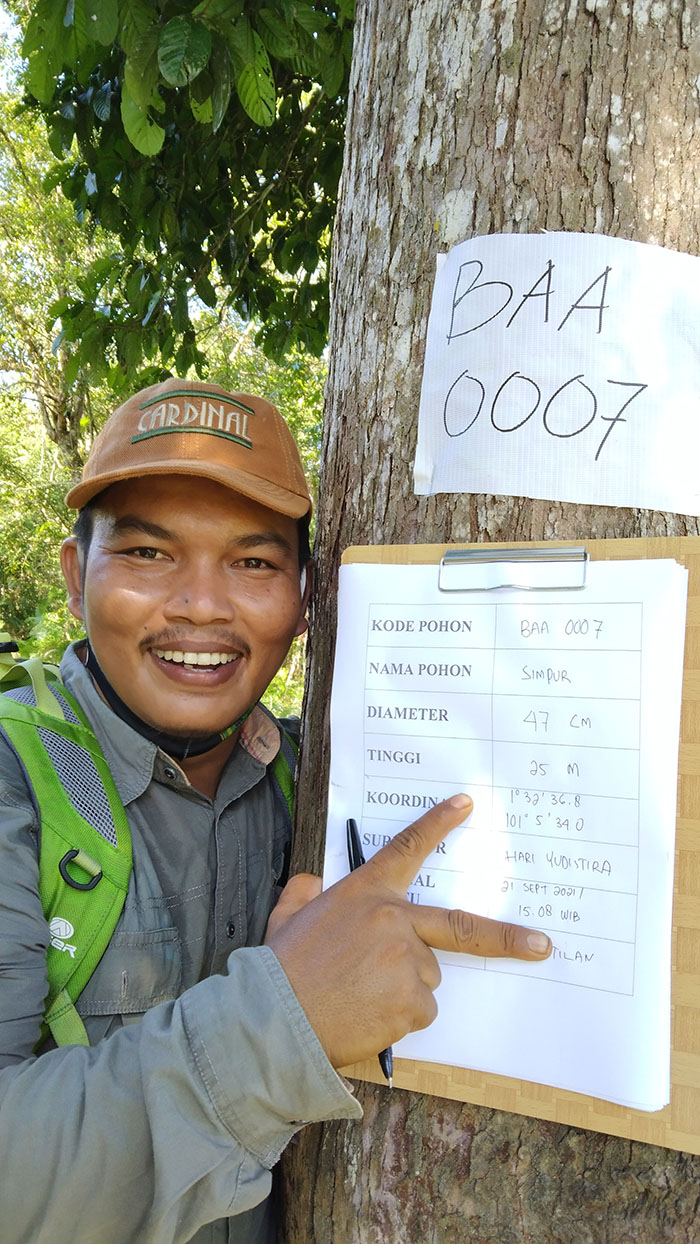 CARDINAL
BAA
0007
KODE POHON BAA 0007
NAMA POHON SIMPUR
DIAMETER 47 CM
TINGGI 25 M
1° 32' 36.8
101° 5' 34.0
HARI YUDISTIRA
21 SEPT 2021/
15.08 WIB